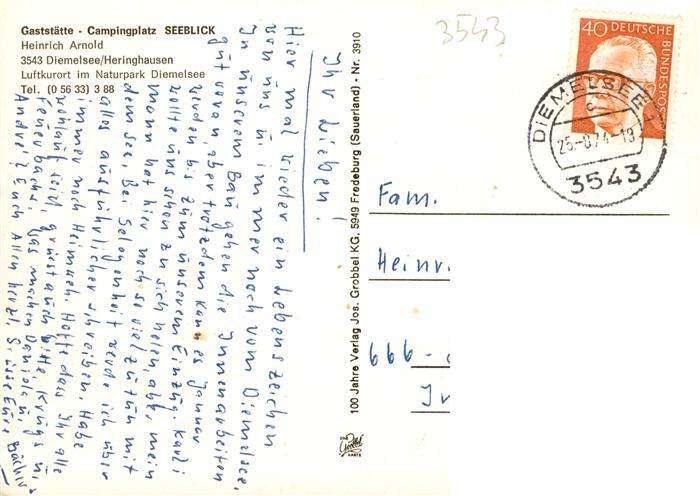 Gaststätte - Campingplatz SEEBLICK
Heinrich Arnold
3543 Diemelsee/Heringhausen
Luftkurort im Naturpark Diemelsee
Tel. (0 56 33) 3 88
Ihr Lieben!
Hier mal wieder ein Lebenszeichen
von uns u. immer noch vom Diemelsee,
In unserem Bau gehen die Innenarbeiten
gut voran, aber trotzdem kann es Januar
werden bis zum unserem Einzug. Karli
wollte uns schon zu sich holen, abb, mein
Mann hat hier noch so viel zu tun mit
dem See. Bei Gelegenheit werde ich über
alles ausführlicher schreiben. Habe
immer noch Heimweh. Hoffe das Ihr alle
wohlauf seid, grüst auch bitte, Krugs u.
Feuerbachs. Was machen Daniela u.
André? Euch Allen herzl. Grüsse Eure
100 Jahre Verlag Jos. Grobbel KG. 5949 Fredeburg (Sauerland) - Nr. 3910
Grobbel
KARTE
3543
40 DEUTSCHE BUNDESPOST
DIEMELSEE 1
25.-8.74-19
3543
Fam.
Heinr.
666-